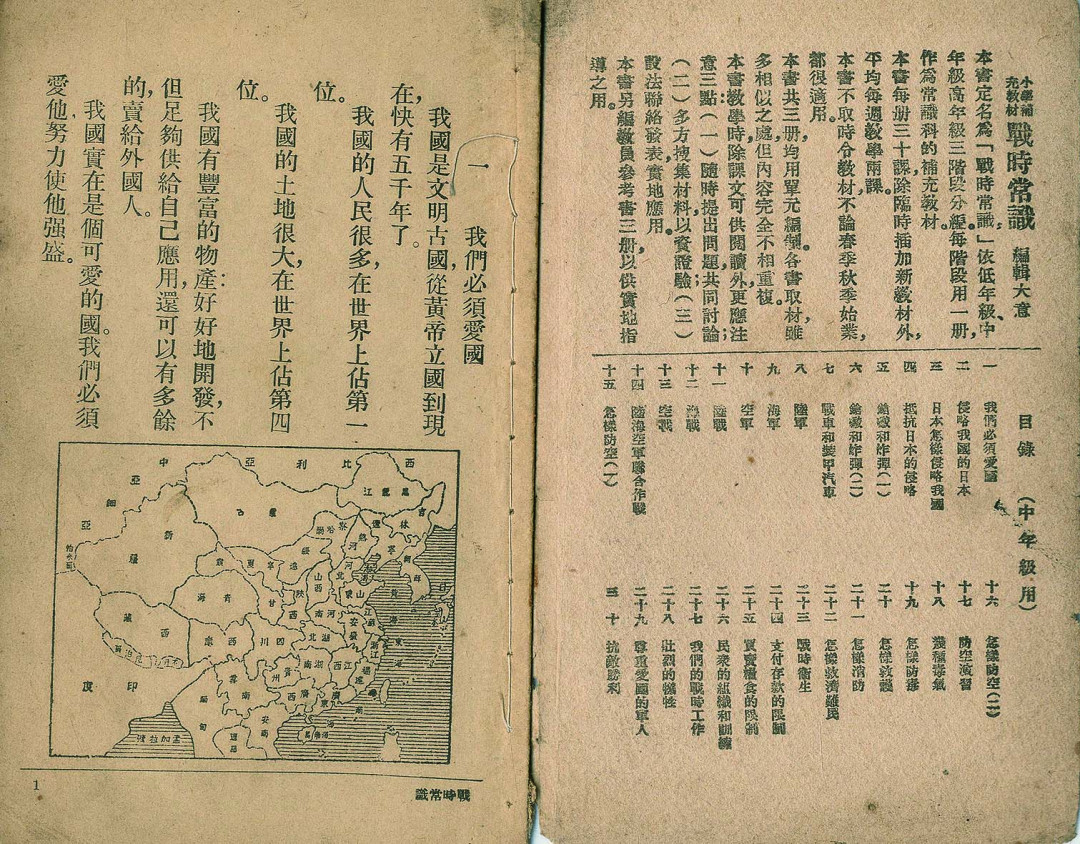 小學補充教材 戰時常識 編輯大意
本書定名為「戰時常識」依低年級中
年級高年級三階段分編每階段用一册,
作為常識科的補充教材。
本書每册三十課除臨時插加新教材外,
平均每週教學兩課。
本書不取時令教材,不論春季秋季始業,
都很適用。
本書共三册,均用單元編制各書取材雖
多相似之處,但內容完全不相重複。
本書教學時,除課文可供閱讀外,更應注
意三點:(一)隨時提出問題,共同討論;
(二)多方搜集材料以資證驗;(三)
設法聯絡發表實地應用。
本書另編教員參考書三册,以供實地指
導之用。
目錄 (中年級用)
一 我們必須愛國
二 侵略我國的日本
三 日本怎樣侵略我國
四 抵抗日本的侵略
五 鎗礮和炸彈(一)
六 鎗礮和炸彈(二)
七 戰車和裝甲汽車
八 陸軍
九 海軍
十 空軍
十一 陸戰
十二 海戰
十三 空戰
十四 陸海空軍聯合作戰
十五 怎樣防空(一)
十六 怎樣防空(二)
十七 防空演習
十八 幾種毒氣
十九 怎樣防毒
二十 怎樣救護
二十一 怎樣消防
二十二 怎樣救濟難民
二十三 戰時衞生
二十四 支付存款的限制
二十五 買賣糧食的限制
二十六 民衆的組織和訓練
二十七 我們的戰時工作
二十八 壯烈的犧牲
二十九 尊重愛國的軍人
三十 抗敵勝利
一 我們必須愛國
我國是文明古國,從黃帝立國到現
在,快有五千年了。
我國的人民很多,在世界上佔第一
位。
我國的土地很大,在世界上佔第四
位。
我國有豐富的物產:好好地開發,不
但足夠供給自己應用,還可以有多餘
的,賣給外國人。
我國實在是個可愛的國。我們必須
愛他,努力使他强盛。
西比利亞
中亞細亞
黑龍江
吉林
遼寧
朝鮮
蒙古
新疆
熱河
察哈爾
綏遠
寧夏
甘肅
青海
西藏
西康
四川
陝西
山西
河北
山東
河南
江蘇
安徽
湖北
浙江
江西
湖南
貴州
福建
廣東
廣西
雲南
黃海
東海
南海
印度
緬甸
安南
暹羅
孟加拉灣
戰時常識
1